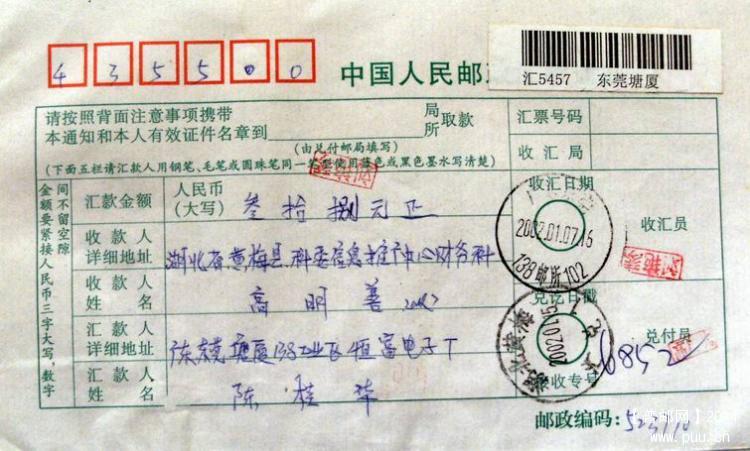 435500
中国人民邮
汇5457 东莞塘厦
请按照背面注意事项携带
本通知和本人有效证件名章到 局所 取款
(由兑付邮局填写)
(下面五栏请汇款人用钢笔、毛笔或圆珠笔同一笔型使用蓝色或黑色墨水写清楚)
汇票号码
收汇局
间不留空隙
金额要紧接人民币三字大写,数字
汇款金额
人民币
(大写) 叁拾捌元正
收汇日期
2002.01.07.16
738邮所102
收汇员
收款人
详细地址
湖北省黄梅县科委信息 中心财务科
收款人
姓名
高明善
兑讫日戳
湖北黄梅
2002.01.15
兑付员
6852
汇款人
详细地址
东莞塘厦138工业区恒富电子厂
汇款人
姓名
陈桂华
收专号
邮政编码:
www.puu.cn